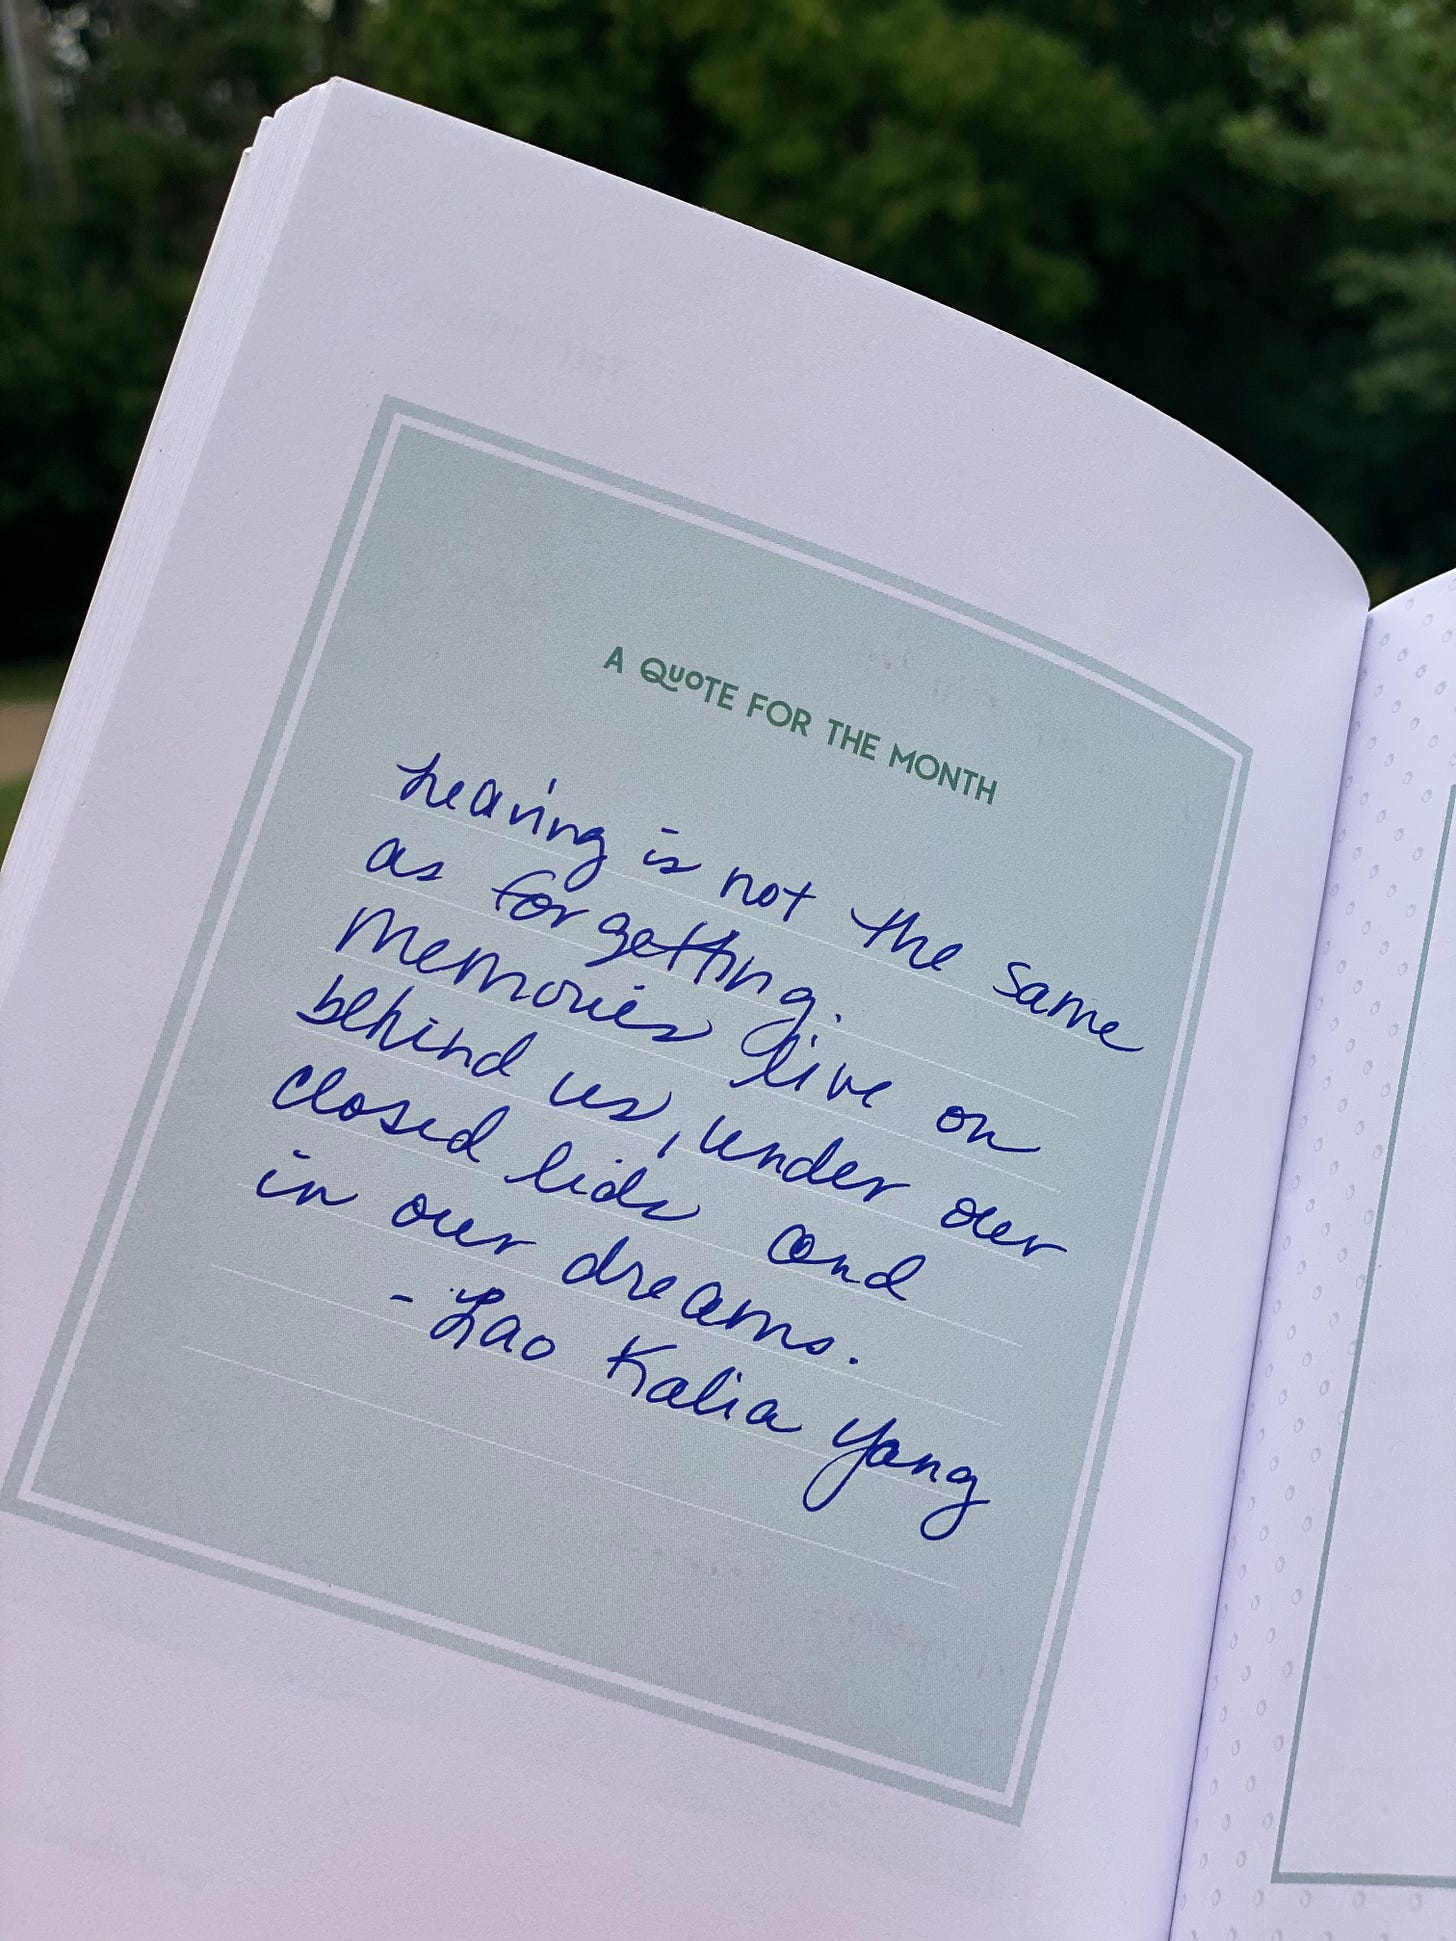 A QUOTE FOR THE MONTH
Leaving is not the same
as forgetting.
Memories live on
behind us, under our
closed lids and
in our dreams.
- Lao Kalia Yang